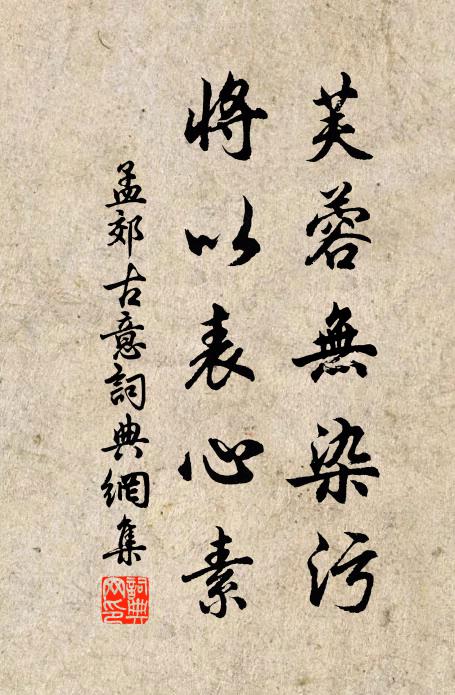 芙蓉無染污
將以表心素
孟郊古意詞典網集
詞典網印